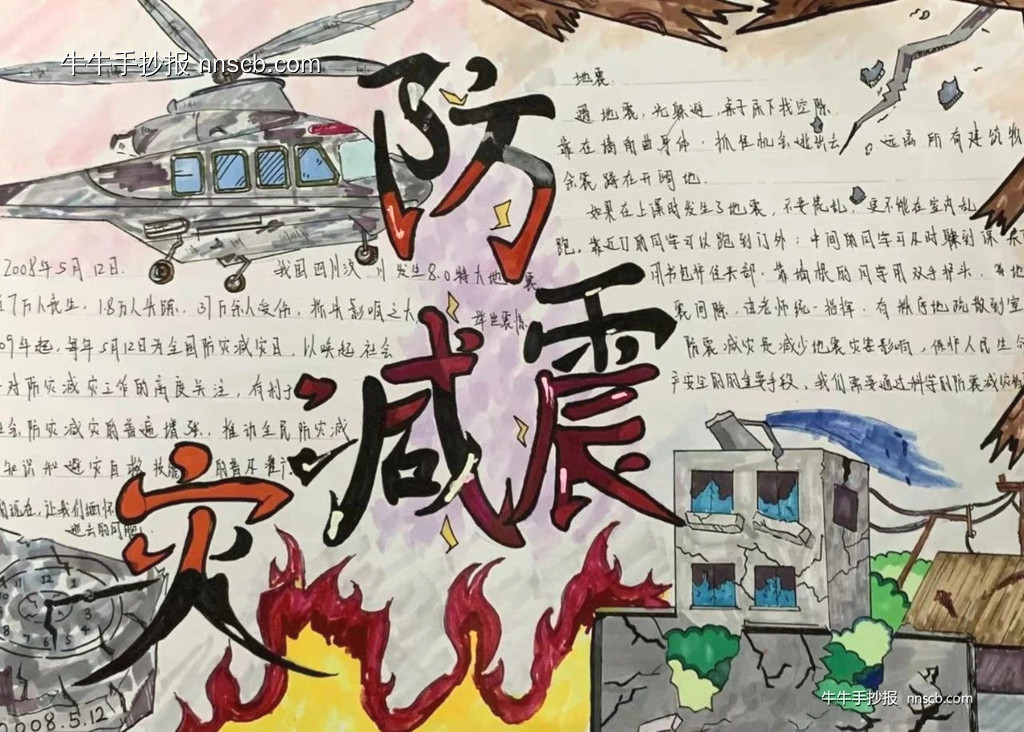 牛牛手抄报 nnscb.com
防震减灾
地震.
遇地震,先躲避,桌子床下找空隙.
靠在墙角曲身体.抓住机会逃出去 远离所有建筑物
余震蹲在开阔地.
如果在上课时发生了地震,不要慌乱,更不能在室内乱
跑.靠近门的同学可以跑到门外;中间的同学可及时躲到课桌下
用书包护住头部.靠墙根的同学用双手护头.等地
震间隙,该老师统一指挥.有秩序地疏散到室
防震减灾是减少地震灾害影响,保护人民生命
产安全的的重要手段,我们需要通过科学的防震减灾
2008年5月12日. 我国四川汶川发生8.0特大地震
7万人丧生,1.8万人失踪.37万余人受伤,损失影响之大
举世震惊
09年起,每年5月12日为全国防灾减灾日,以唤起社会
对防灾减灾工作的高度关注,有利于
社会防灾减灾的普遍增强.推动全民防灾减
知识和避灾自救技能的普及推广
的现在,让我们缅怀
逝去的同胞.
12 1 2 3 4 5 6 7 8 10 11
2008.5.12
牛牛手抄报 nnscb.com